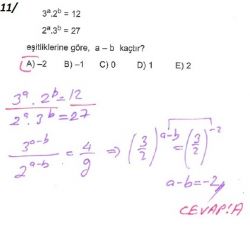 11/
3ᵃ.2ᵇ = 12
2ᵃ.3ᵇ = 27
eşitliklerine göre, a – b kaçtır?
A) –2 B) –1 C) 0 D) 1 E) 2
3ᵃ . 2ᵇ = 12
2ᵃ . 3ᵇ = 27
3ᵃ⁻ᵇ / 2ᵃ⁻ᵇ = 4/9 ⇒ (3/2)ᵃ⁻ᵇ = (3/2)⁻²
a-b=-2
CEVAP:A